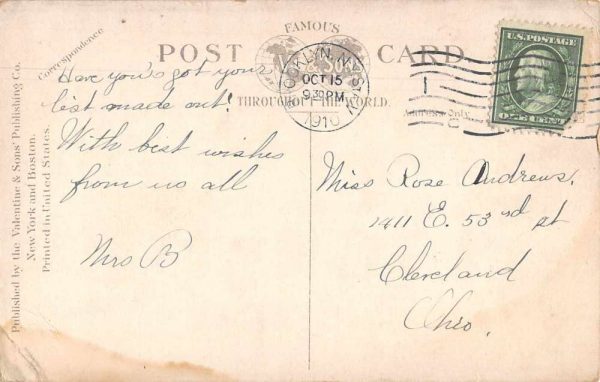 FAMOUS
POST CARD
THROUGHOUT THE WORLD.
Correspondence
Address Only
BROOKLYN, N.Y.
OCT 15
9:30 PM
1910
U.S. POSTAGE
ONE CENT
Have you's got your
list made out!
With best wishes
from us all
Mrs B
Miss Rose Andrews.
1911 E. 53rd st
Cleveland
Ohio.
Published by the Valentine & Sons' Publishing Co.
New York and Boston.
Printed in United States.